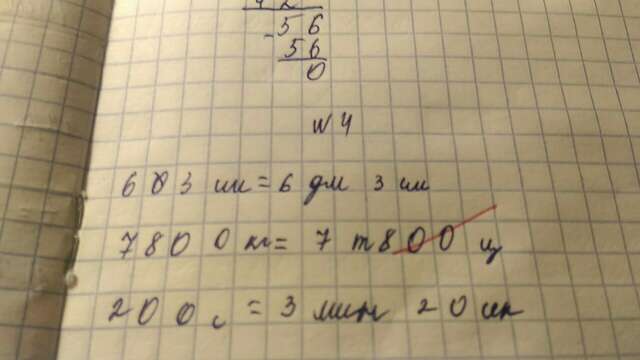 42
- 56
56
0
№4
603 мм = 6 дм 3 мм
7800 кг = 7 т 800 ц
200 с = 3 мин 20 сек